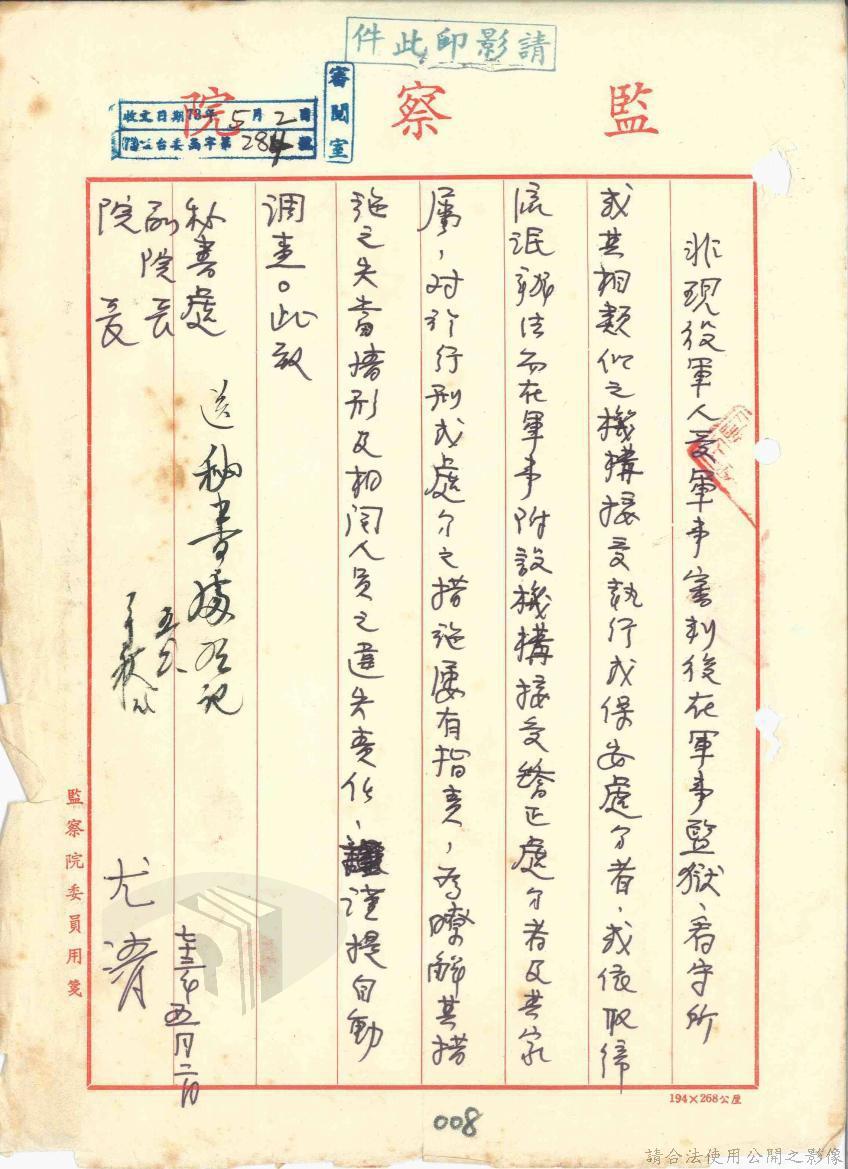 請影印此件
監察院
審閱室
收文日期73年5月2日
284號
非現役軍人受軍事審判後在軍事監獄、看守所
或其相類似之機構接受執行或保安處分者，或依取締
流氓辦法而在軍事附設機構接受矯正處分者及其家
屬，對於行刑或處分之措施屢有指責，為瞭解其措
施之失當情形及相關人員之違失責任、謹提自動
調查。此致
秘書處
副院長
院長
送秘書處登記
尤清
七十三年五月二日
監察院委員用箋
194×268公厘
008
請合法使用公開之影像